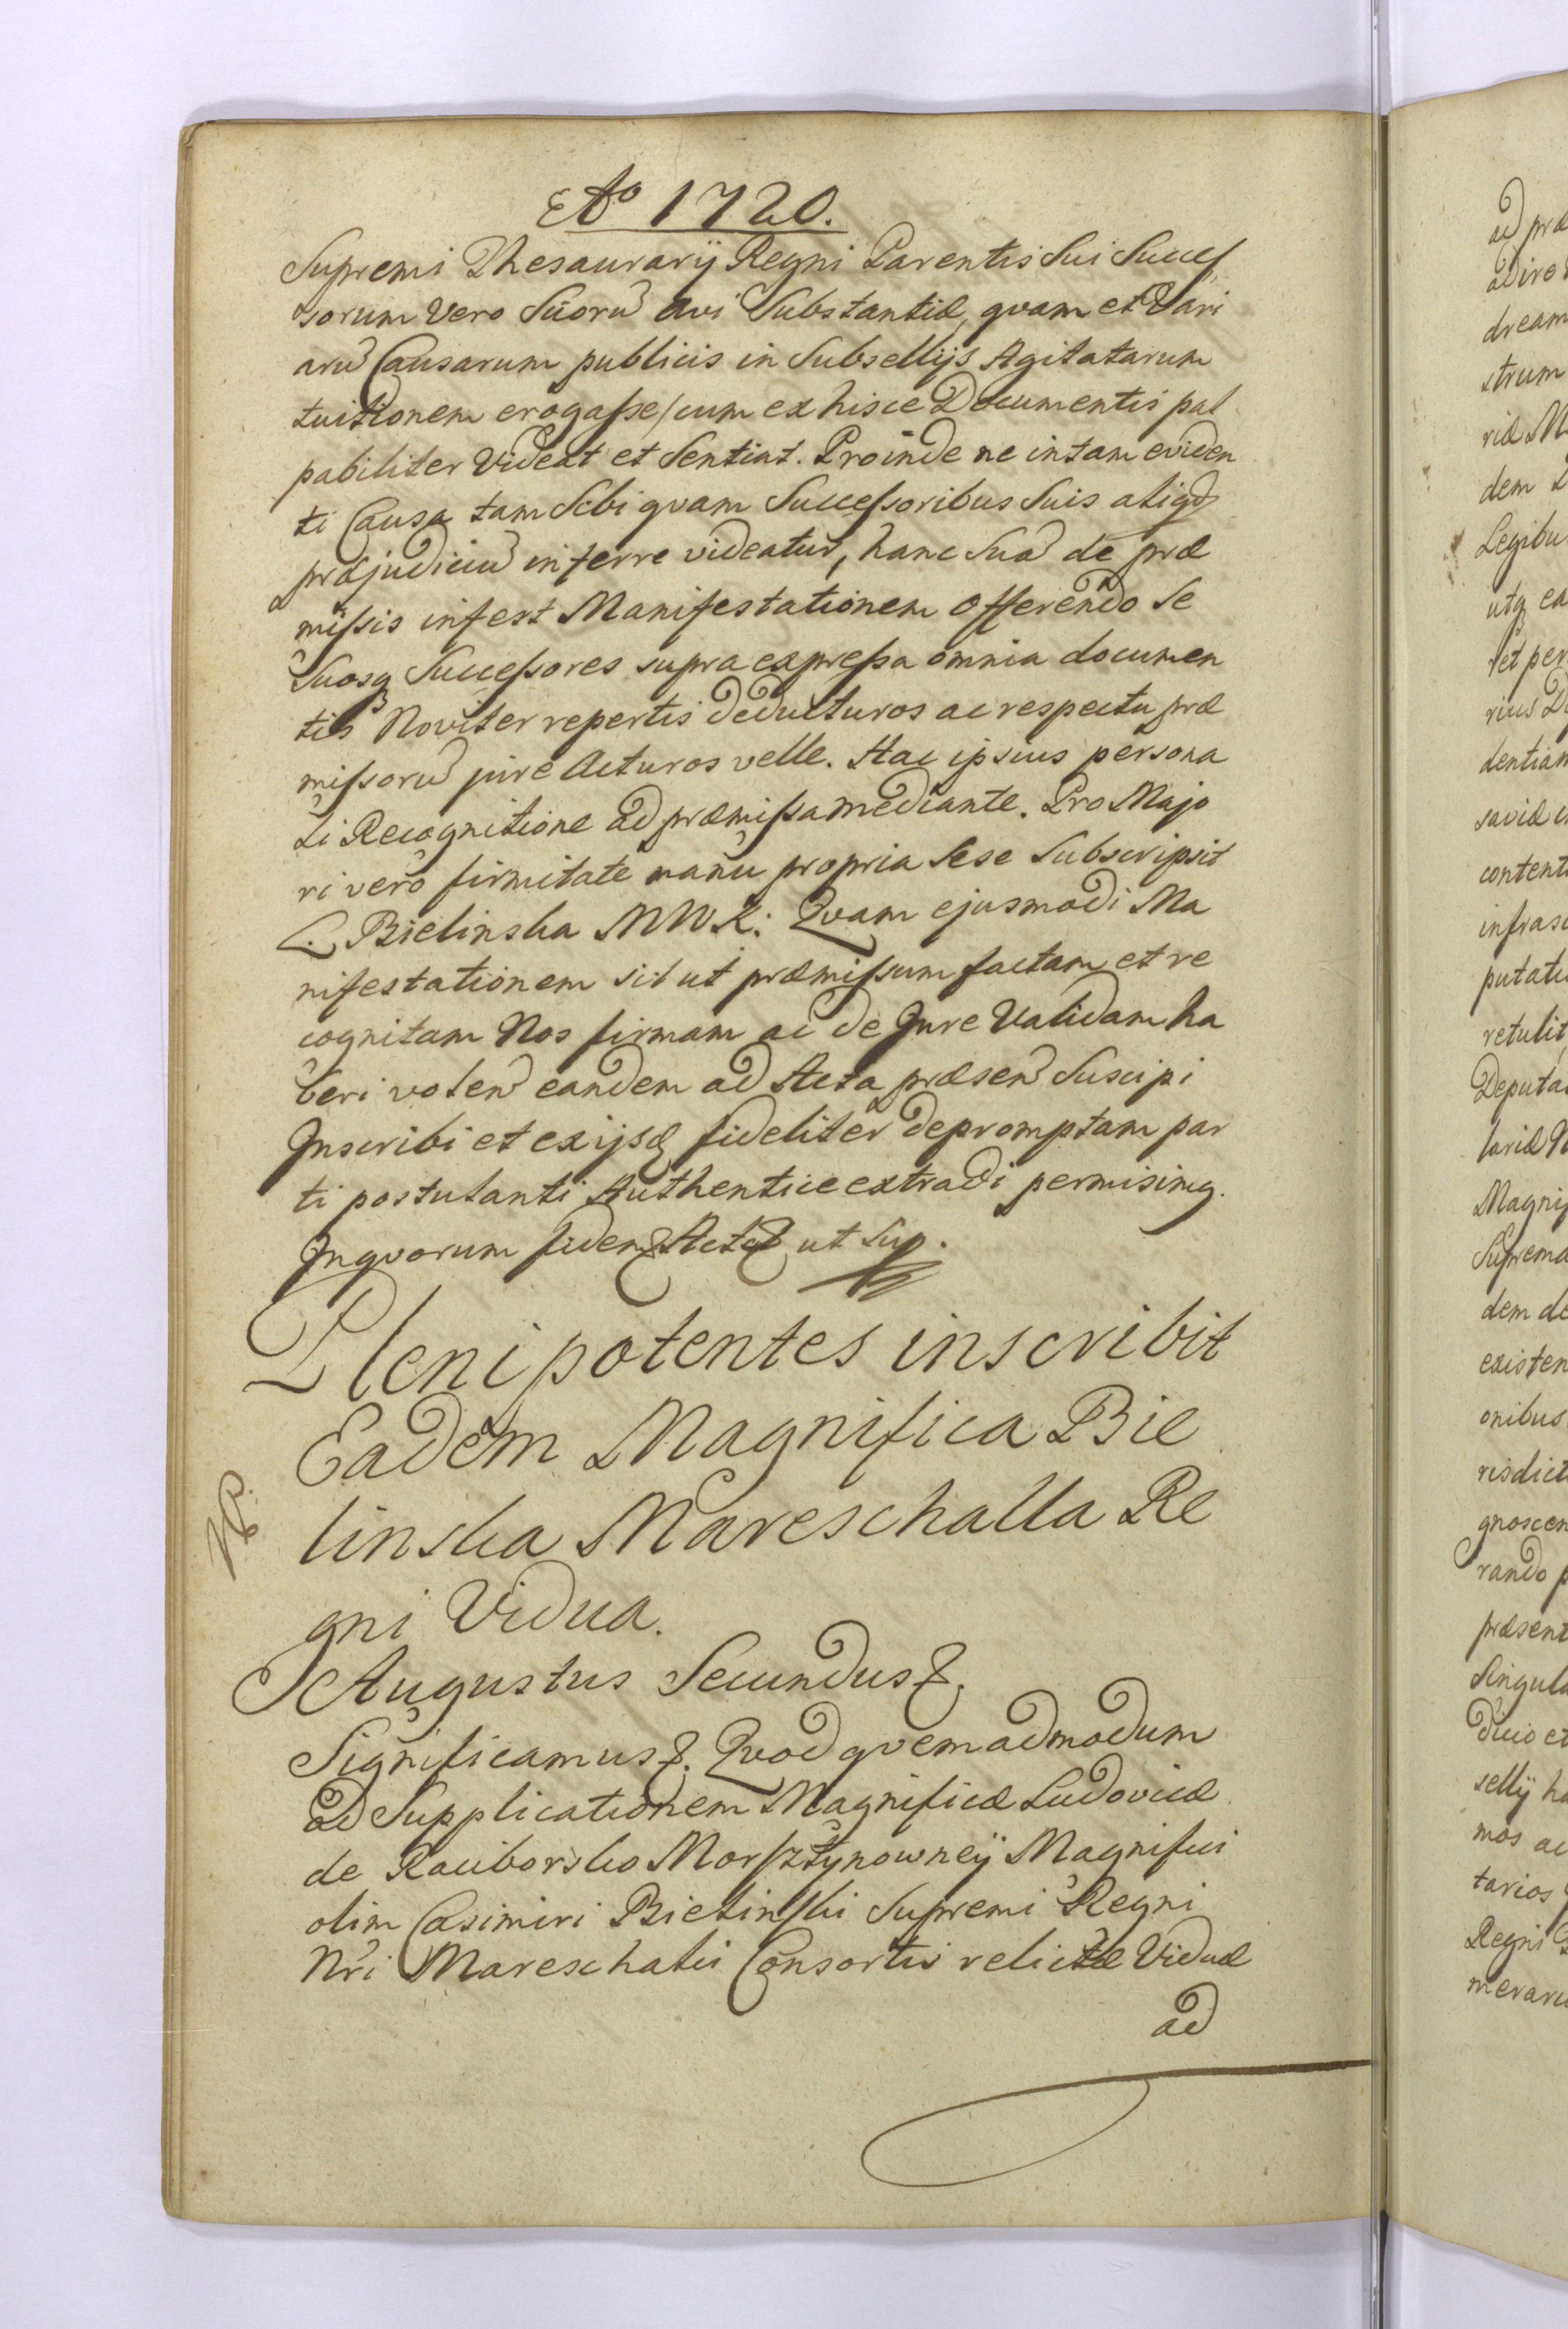 Ao 1720.
Supremi Thesaurarij Regni Parentis Sui Succes
sorum Vero Suoru avi Substantiæ, qvam et Vari
aru Causarum publicis in Subsellijs Agitatarum
tuitionem erogasse/cum ex hisce Documentis pal
pabiliter Videat et Sentiat. Proinde ne in tam eviden
ti Causa tam Sibi qvam Successoribus Suis aliqd
præjudiciu inferre videatur, hanc Sua de præ
missis infert Manifestationem Offerendo Se
Suosq Successores supra expressa omnia documen
tis Noviter repertis deducturos ac respectu præ
missoru jure Acturos velle. Hac ipsius persona
li Recognitione ad præmissa mediante. Pro Majo
ri vero firmitate manu propria Sese Subscripsit
L. Bielinska MWK: Qvam ejusmodi Ma
nifestationem sic ut præmissum factam et re
cognitam Nos firmam ac de Jure Validam ha
beri volen eandem ad Acta præsen Suscipi
Inscribi et ex ijsd fideliter depromptam par
ti postulanti Authentice extradi permisimq.
In qvorum fidem & Act & ut Sup.
Plenipotentes inscribit
Eadem Magnifica Bie
linska Mareschalla Re
gni Vidua.
Augustus Secundus &.
Significamus &. Qvod qvemadmodum
ad Supplicationem Magnificæ Ludovicæ
de Raciborsko Morsztynowney Magnifici
olim Casimiri Bielinski Supremi Regni
Nri Mareschalci Consortis relictæ Viduæ
ad
ad præ
dream
strum
riæ M
dem
Legibu
utq ea
et per
dentiam
saviæ
content
infrasc
putat
retulit
Deputa
Magnif
Suprema
dem de
existen
onibus
risdict
gnoscen
rando p
præsent
Singula
dicio et
sellij ha
mos ac
tarios
Regni
meraru